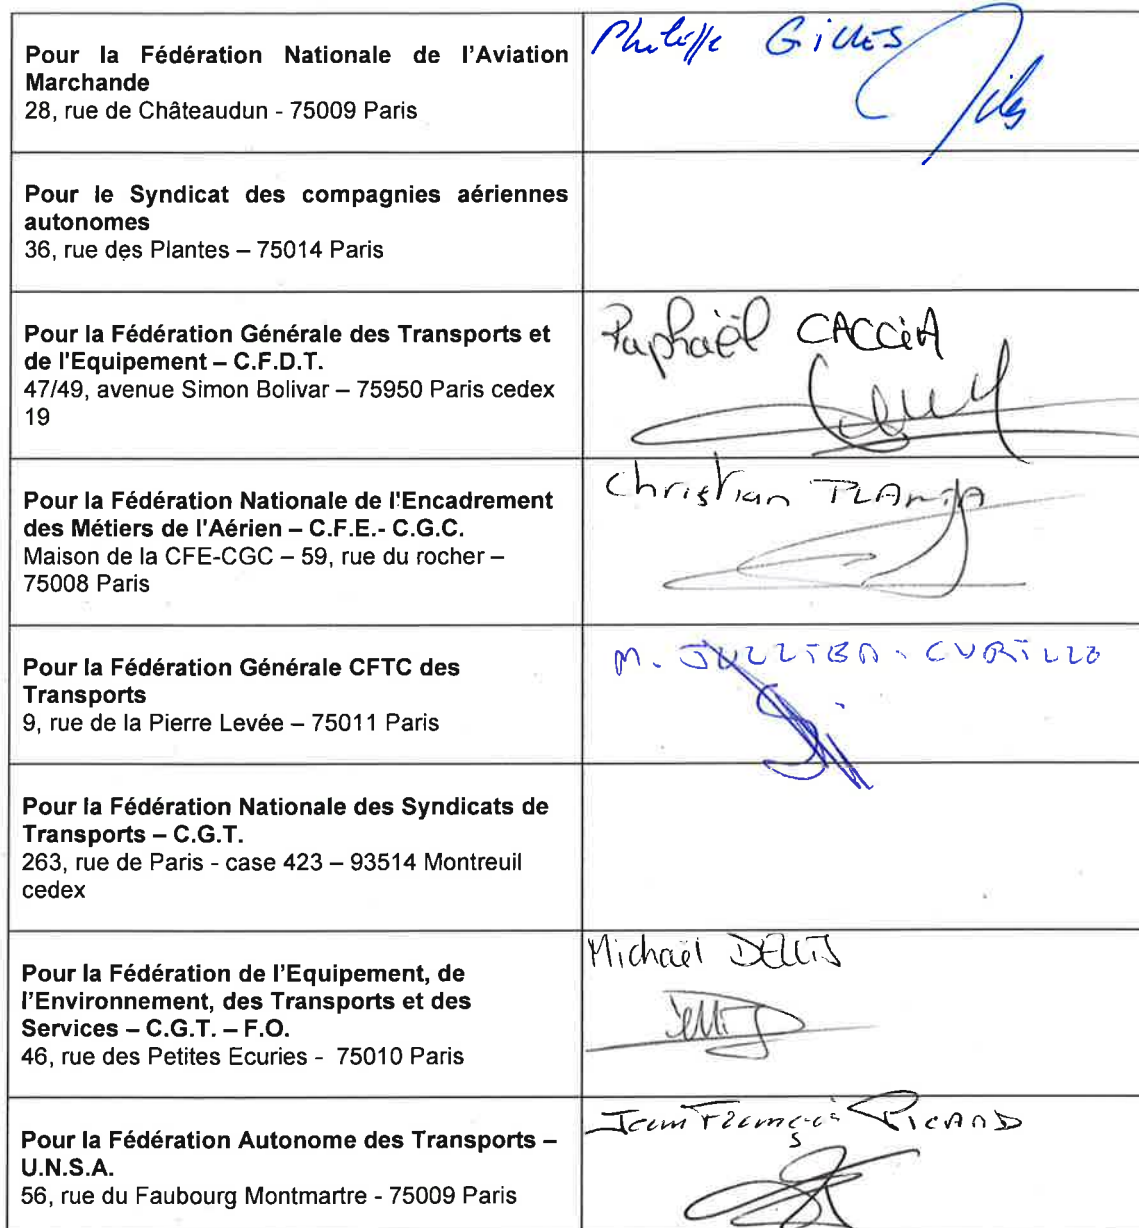 Pour la Fédération Nationale de l'Aviation
Marchande
28, rue de Châteaudun - 75009 Paris
Philippe GILLES
Pour le Syndicat des compagnies aériennes
autonomes
36, rue des Plantes – 75014 Paris
Pour la Fédération Générale des Transports et
de l'Equipement – C.F.D.T.
47/49, avenue Simon Bolivar – 75950 Paris cedex
19
Raphaël CACCiA
Pour la Fédération Nationale de l'Encadrement
des Métiers de l'Aérien – C.F.E.- C.G.C.
Maison de la CFE-CGC – 59, rue du rocher –
75008 Paris
Christian
Pour la Fédération Générale CFTC des
Transports
9, rue de la Pierre Levée – 75011 Paris
M.
Pour la Fédération Nationale des Syndicats de
Transports – C.G.T.
263, rue de Paris - case 423 – 93514 Montreuil
cedex
Pour la Fédération de l'Equipement, de
l'Environnement, des Transports et des
Services – C.G.T. – F.O.
46, rue des Petites Ecuries - 75010 Paris
Michaël
Pour la Fédération Autonome des Transports –
U.N.S.A.
56, rue du Faubourg Montmartre - 75009 Paris
Jean François PICARD